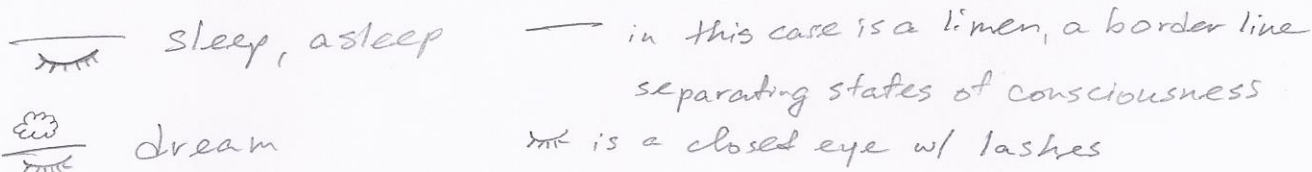 sleep, asleep
in this case is a limen, a border line
separating states of consciousness
dream
is a closed eye w/ lashes